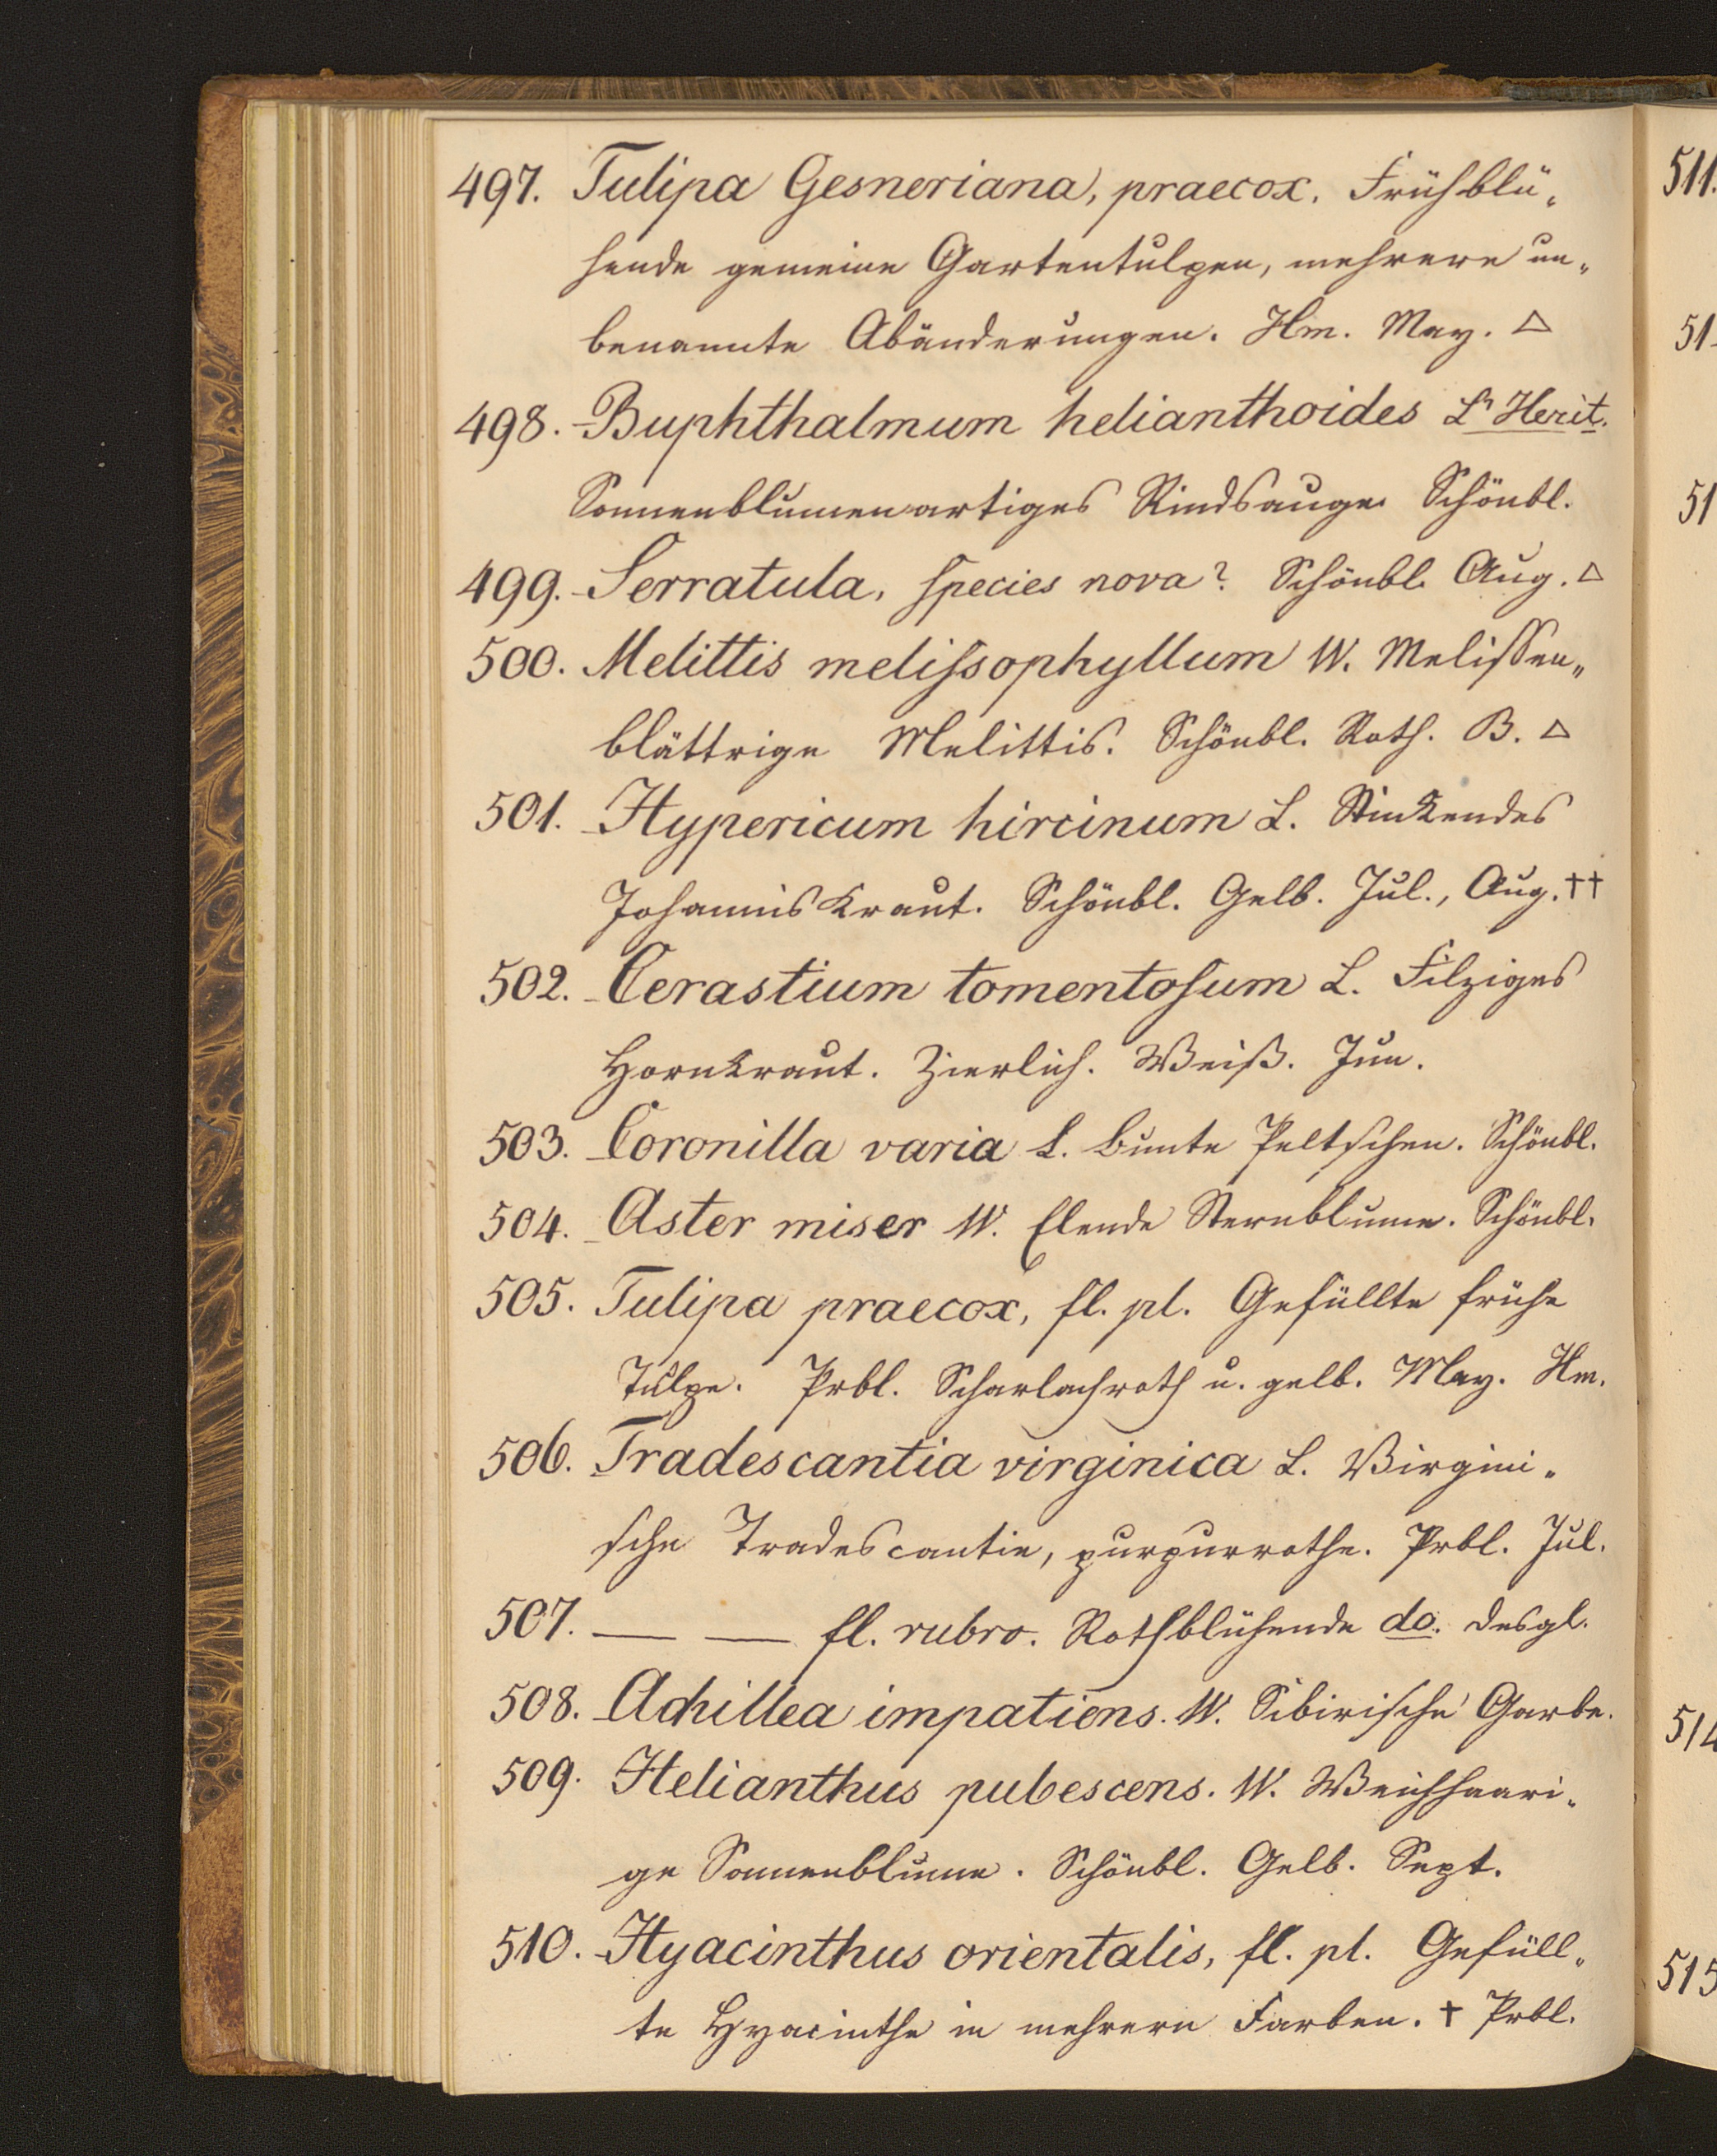 497. Tulipa Gesneriana, praecox. Frühblü„
hende gemeine Gartentulpen, mehrere un„
benannte Abänderungen. Hm. May. △
498. Buphthalmum helianthoides L'Herit.
Sonnenblumenartiges Rindsauge. Schönbl.
499. Serratula, ſpecies nova? Schönbl. Aug. △
500. Melittis meliſsophyllum W. Meliſſen„
blättrige Melittis. Schönbl. Roth. B. △
501. Hypericum hircinum L. Stinkendes
Johanniskraut. Schönbl. Gelb. Jul., Aug. ††
502. Cerastium tomentoſum L. Filziges
Hornkraut. Zierlich. Weiß. Jun.
503. Coronilla varia L. Bunte Peltschen. Schönbl.
504. Aster miser W. Elende Sternblume. Schönbl.
505. Tulipa praecox, fl. pl. Gefüllte frühe
Tulpe. Prbl. Scharlachroth u. gelb. May. Hm.
506. Tradescantia virginica L. Virgini„
sche Tradescantie, purpurrothe. Prbl. Jul.
507. — — fl. rubro. Rothblühende do. desgl.
508. Achillea impatiens. W. Sibirische Garbe.
509. Helianthus pubescens. W. Weichhaari„
ge Sonnenblume. Schönbl. Gelb. Sept.
510. Hyacinthus orientalis, fl. pl. Gefüll„
te Hyacinthe in mehrern Farben. † Prbl.
511.
51
51
514
515